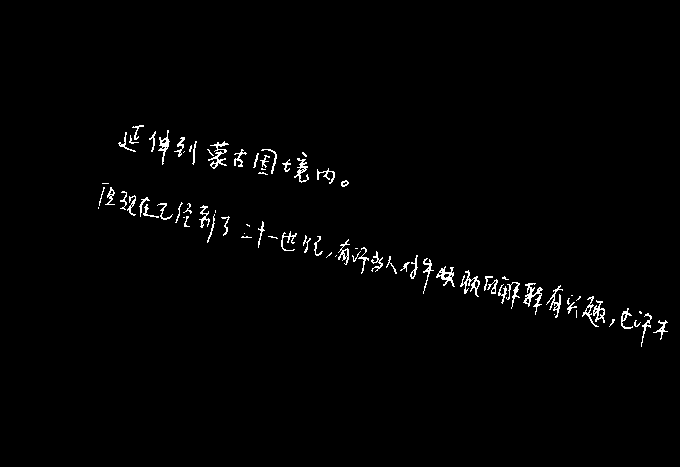 延伸到蒙古国境内。
但现在已经到了二十一世纪,有许多人对牛顿顿的解释有兴趣,也许本